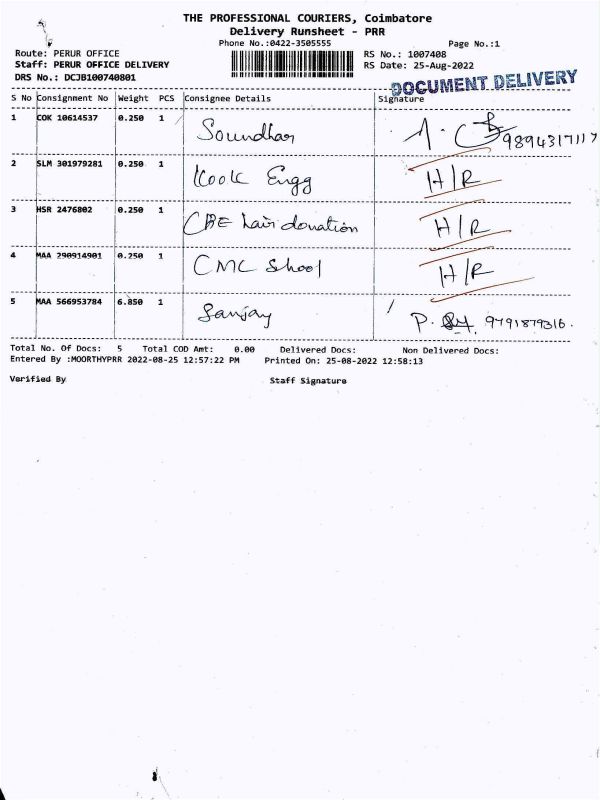 THE PROFESSIONAL COURIERS, Coimbatore
Delivery Runsheet - PRR
Phone No.:0422-3505555
Page No.:1
Route: PERUR OFFICE
RS No.: 1007408
Staff: PERUR OFFICE DELIVERY
RS Date: 25-Aug-2022
DRS No.: DCJB100740801
DOCUMENT DELIVERY
S No Consignment No Weight PCS Consignee Details Signature
1 COK 10614537 0.250 1 Soundhar 9894317117
2 SLM 301979281 0.250 1 Engg H/R
3 HSR 2476802 0.250 1 CBE hair donation H/R
4 MAA 290914901 0.250 1 CMC School H/R
5 MAA 566953784 6.850 1 Sanjay P. 9791879316.
Total No. Of Docs: 5 Total COD Amt: 0.00 Delivered Docs: Non Delivered Docs:
Entered By :MOORTHYPRR 2022-08-25 12:57:22 PM Printed On: 25-08-2022 12:58:13
Verified By Staff Signature